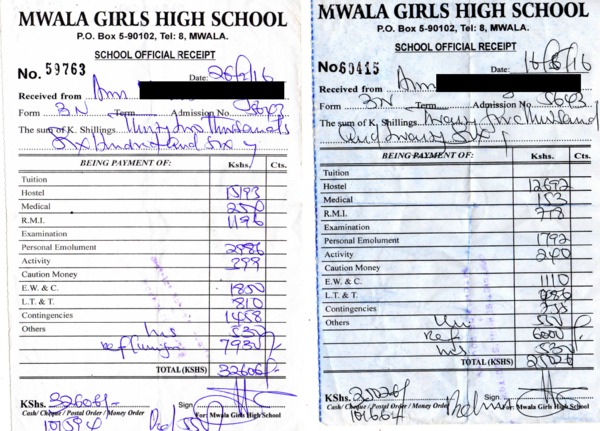 MWALA GIRLS HIGH SCHOOL
P.O. Box 5-90102, Tel: 8, MWALA.
SCHOOL OFFICIAL RECEIPT
No. 59763 Date: 26/2/16
Received from Ann
Form 3N Term Admission No 5643
The sum of K. Shillings Thirty two thousands
Six hundred and six
BEING PAYMENT OF: Kshs. Cts.
Tuition
Hostel
Medical 250
R.M.I. 1196
Examination
Personal Emolument 2986
Activity 399
Caution Money
E.W. & C. 1850
L.T. & T. 810
Contingencies 1458
Others 530
7930
TOTAL (KSHS) 32606/-
KShs. 32606/- Sign
Cash/ Cheque / Postal Order / Money Order For: Mwala Girls High School
MWALA GIRLS HIGH SCHOOL
P.O. Box 5-90102, Tel: 8, MWALA.
SCHOOL OFFICIAL RECEIPT
No 60415 Date: 16/5/16
Received from Ann
Form 3N Term Admission No 5643
The sum of K. Shillings Twenty five thousand
and twenty six
BEING PAYMENT OF: Kshs. Cts.
Tuition
Hostel 12692
Medical 153
R.M.I. 778
Examination
Personal Emolument 1792
Activity 240
Caution Money
E.W. & C. 1110
L.T. & T.
Contingencies
Others
Ref 6000
530
TOTAL (KSHS)
KShs. Sign
Cash/ Cheque / Postal Order / Money Order For: Mwala Girls High School
101664